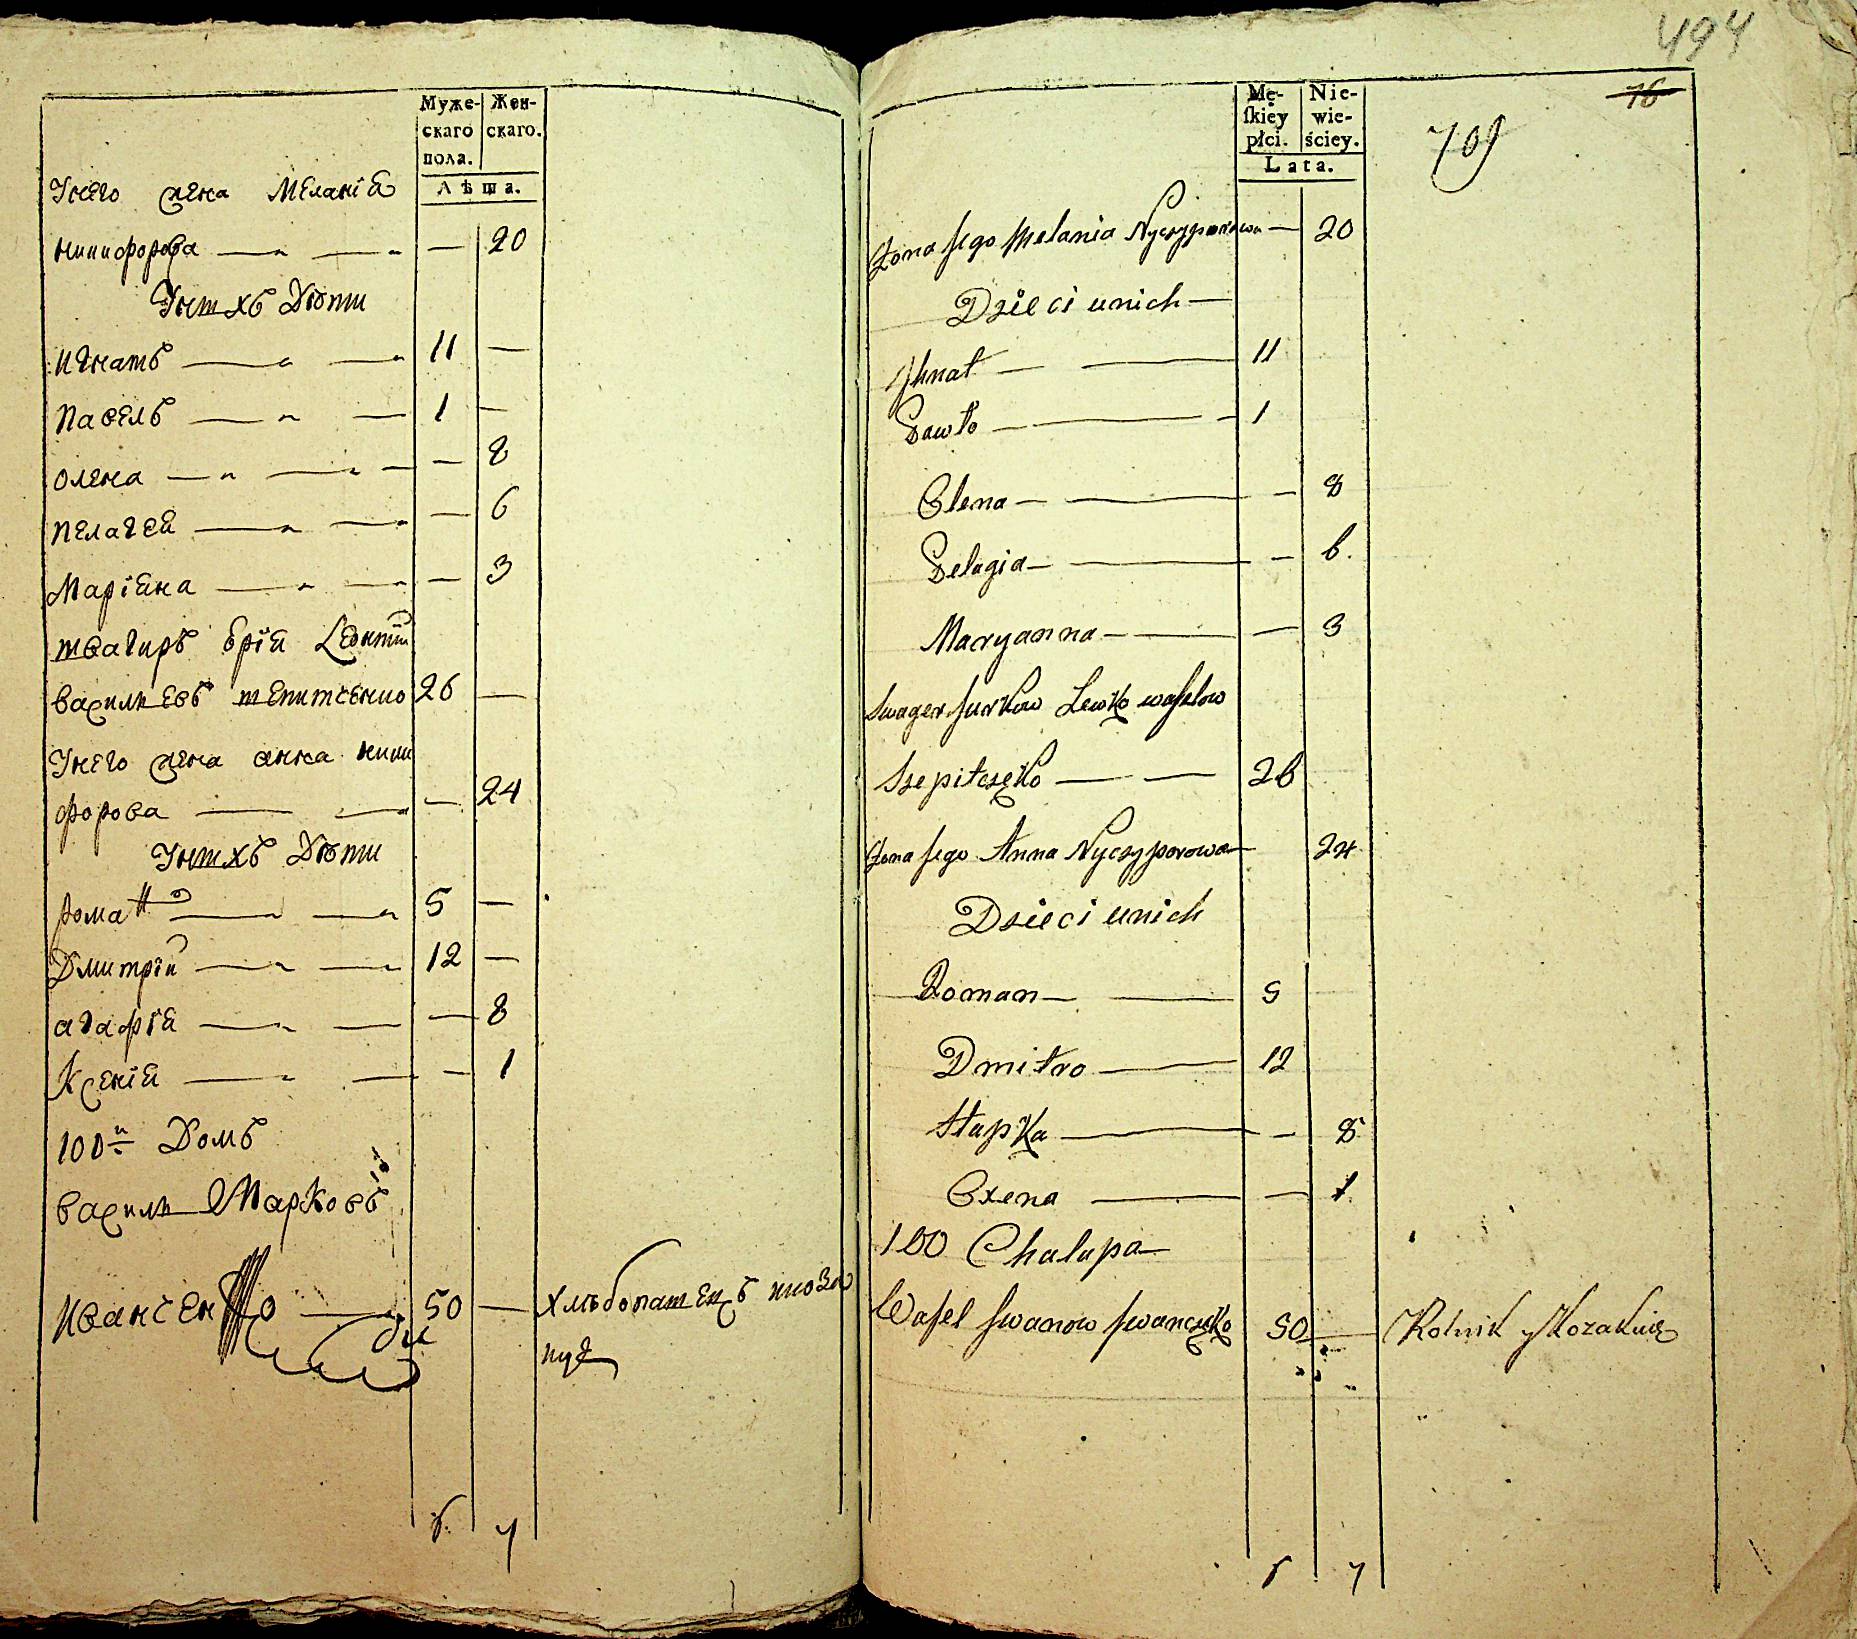 Муже-
скаго
пола.
Жен-
скаго.
Лѣта.
Унего жена Меланія
никифорова — — — 20
Унихъ Дѣти
Игнатъ — — 11 —
Павелъ — — 1 —
Олена — — — 8
Пелагея — — — 6
Маріяна — — — 3
швагиръ Леонтій
василиевъ 26 —
Унего жена анна ники
форова — — — 24
Унихъ Дѣти
Романъ — — 5 —
Дмитрій — — 12 —
агафія — — — 8
Ксенія — — — 1
100й Домъ
василий Марковъ
Иванченко — 50 — Хлѣбопашецъ
5 7
494
76
Mę-
skiey
płci.
Nie-
wie-
ściey.
Lata.
Żona jego Melania Nyczyporowa — 20
Dzieci unich —
Jhnat — — 11
Pawło — — 1
Olena — — — 8
Pelagia — — — 6.
Maryanna — — — 3
Swager Lewko waselow
Szepitczęko — — 26
Żona jego Anna Nyczyporowa — 24
Dzieci unich
Roman — — 5
Dmitro — 12
Hapka — — 8
Oxena — — 1.
100 Chalupa —
Wasel Jwanow Jwanczęko 50 — Rolnik y
5 7